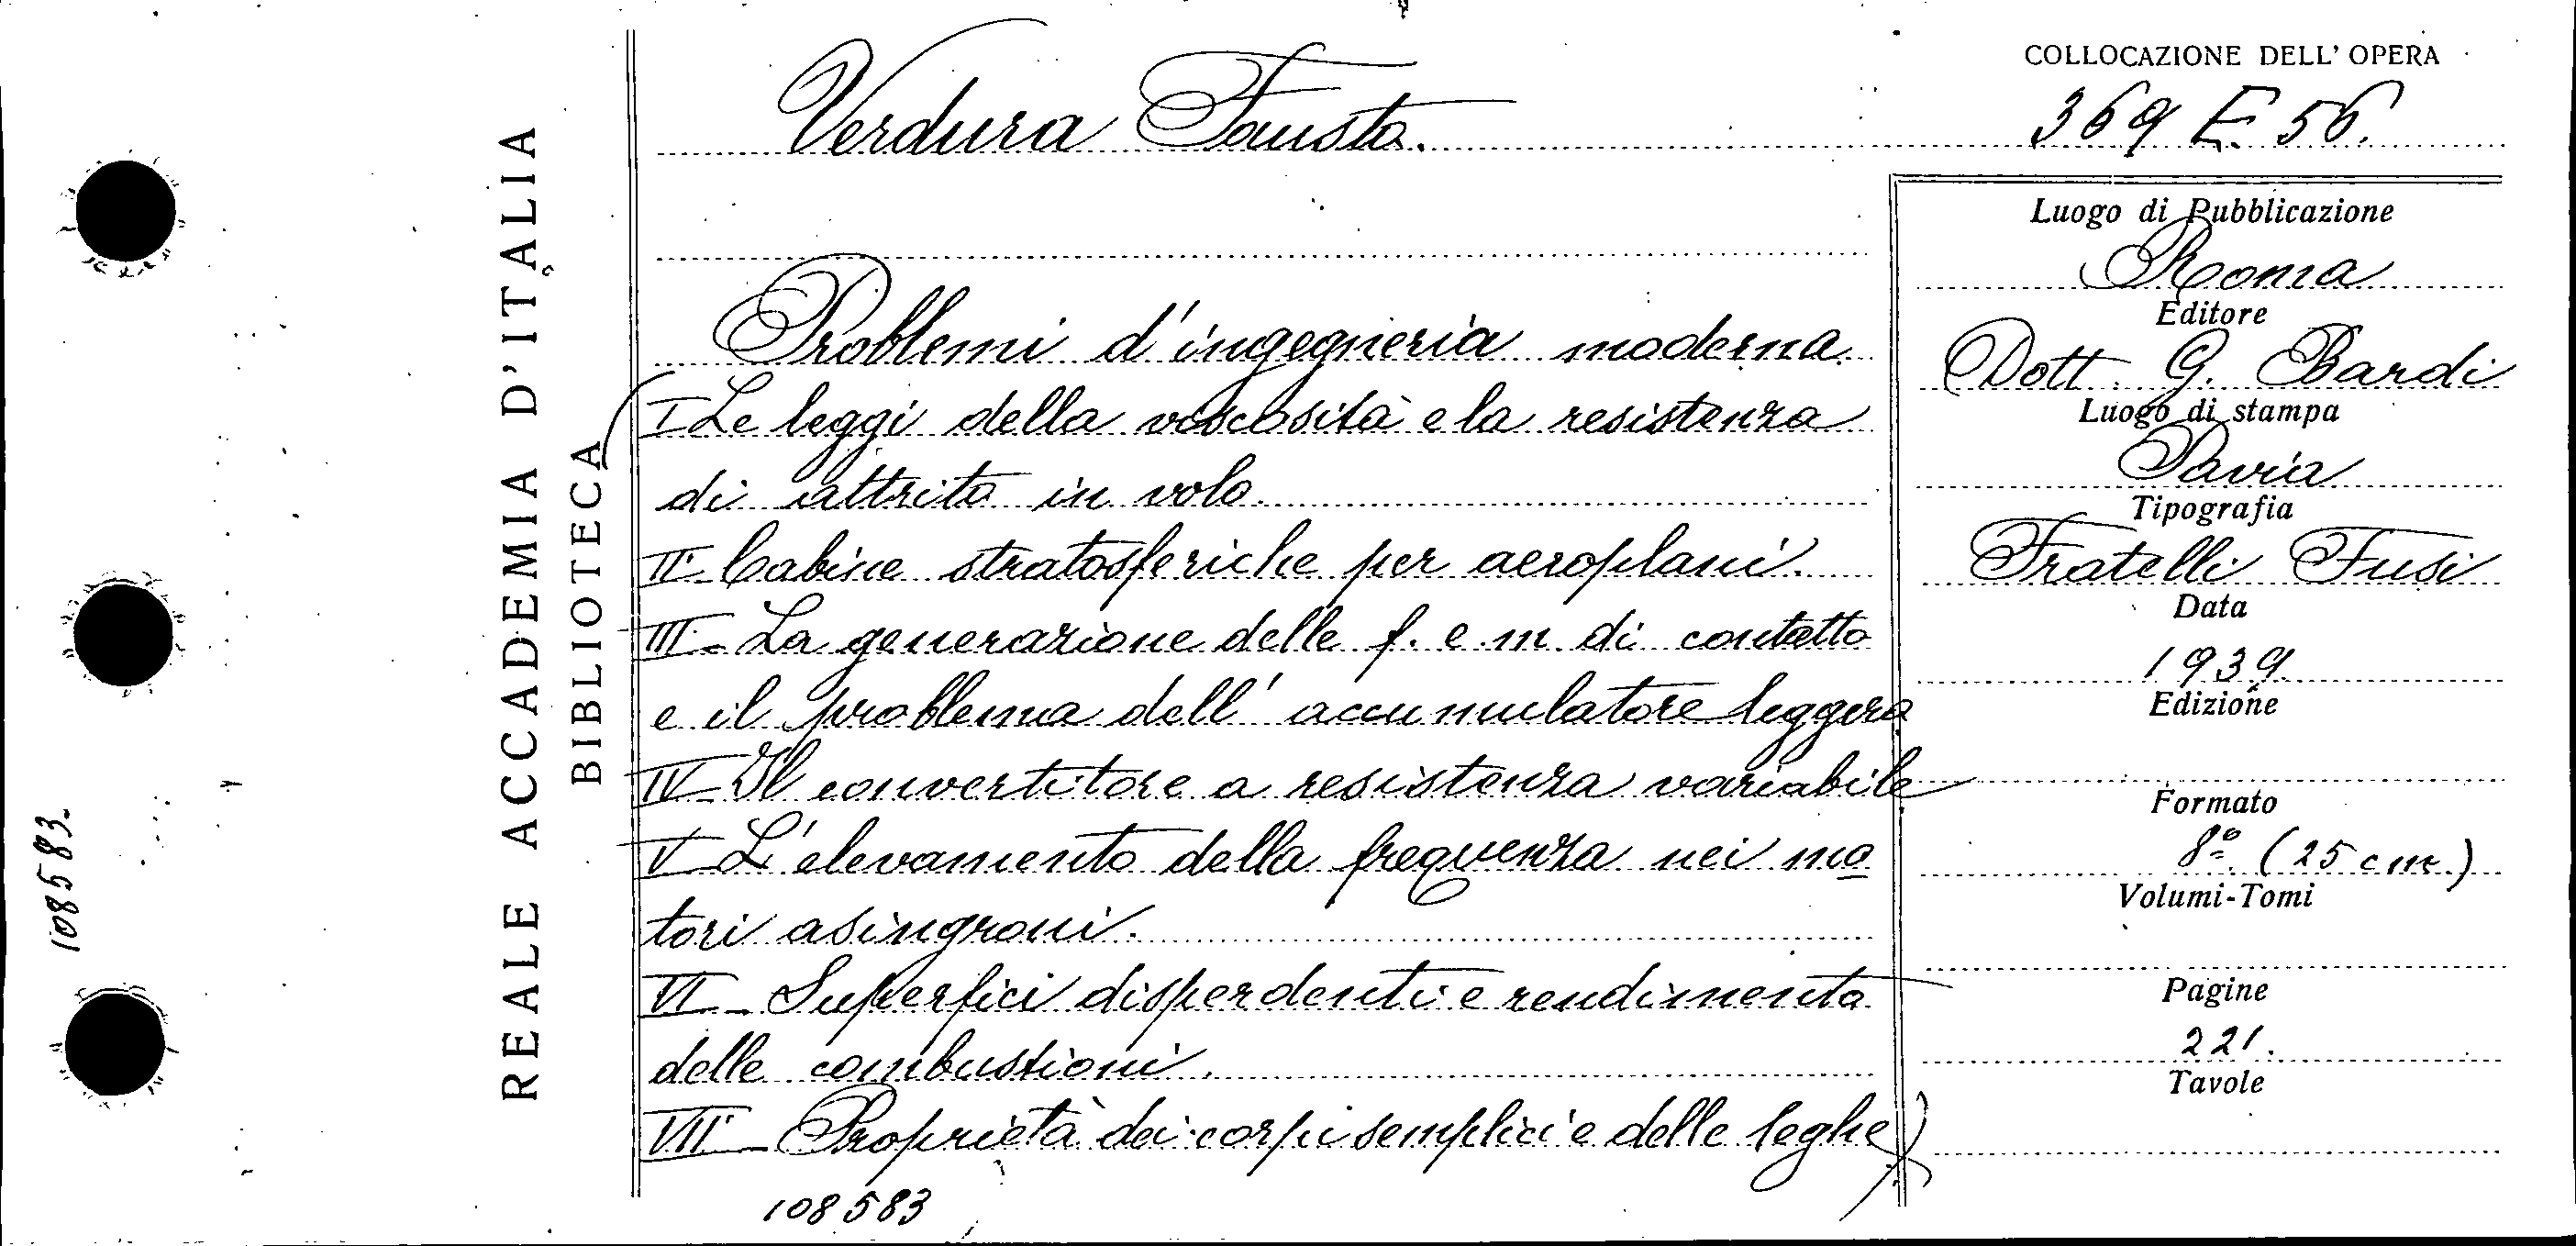 COLLOCAZIONE DELL' OPERA
Verdura Fausto.
369 E. 56.
REALE ACCADEMIA D'ITALIA
BIBLIOTECA
108583.
Problemi d'ingegneria moderna.
(I Le leggi della viscosità e la resistenza
di attrito in volo.
II. Cabine stratosferiche per aeroplani.
III. - La generazione delle f. e. m. di contatto
e il problema dell' accumulatore leggero
IV - Il convertitore a resistenza variabile
V - L'elevamento della frequenza nei mo
tori asingroni.
VI - Superfici disperdenti e rendimento
delle combustioni.
VII - Proprietà dei corpi semplici e delle leghe)
108583
Luogo di Pubblicazione
Roma
Editore
Dott. G. Bardi
Luogo di stampa
Pavia
Tipografia
Fratelli Fusi
Data
1939.
Edizione
Formato
8º. (25 cm.)
Volumi-Tomi
Pagine
221.
Tavole